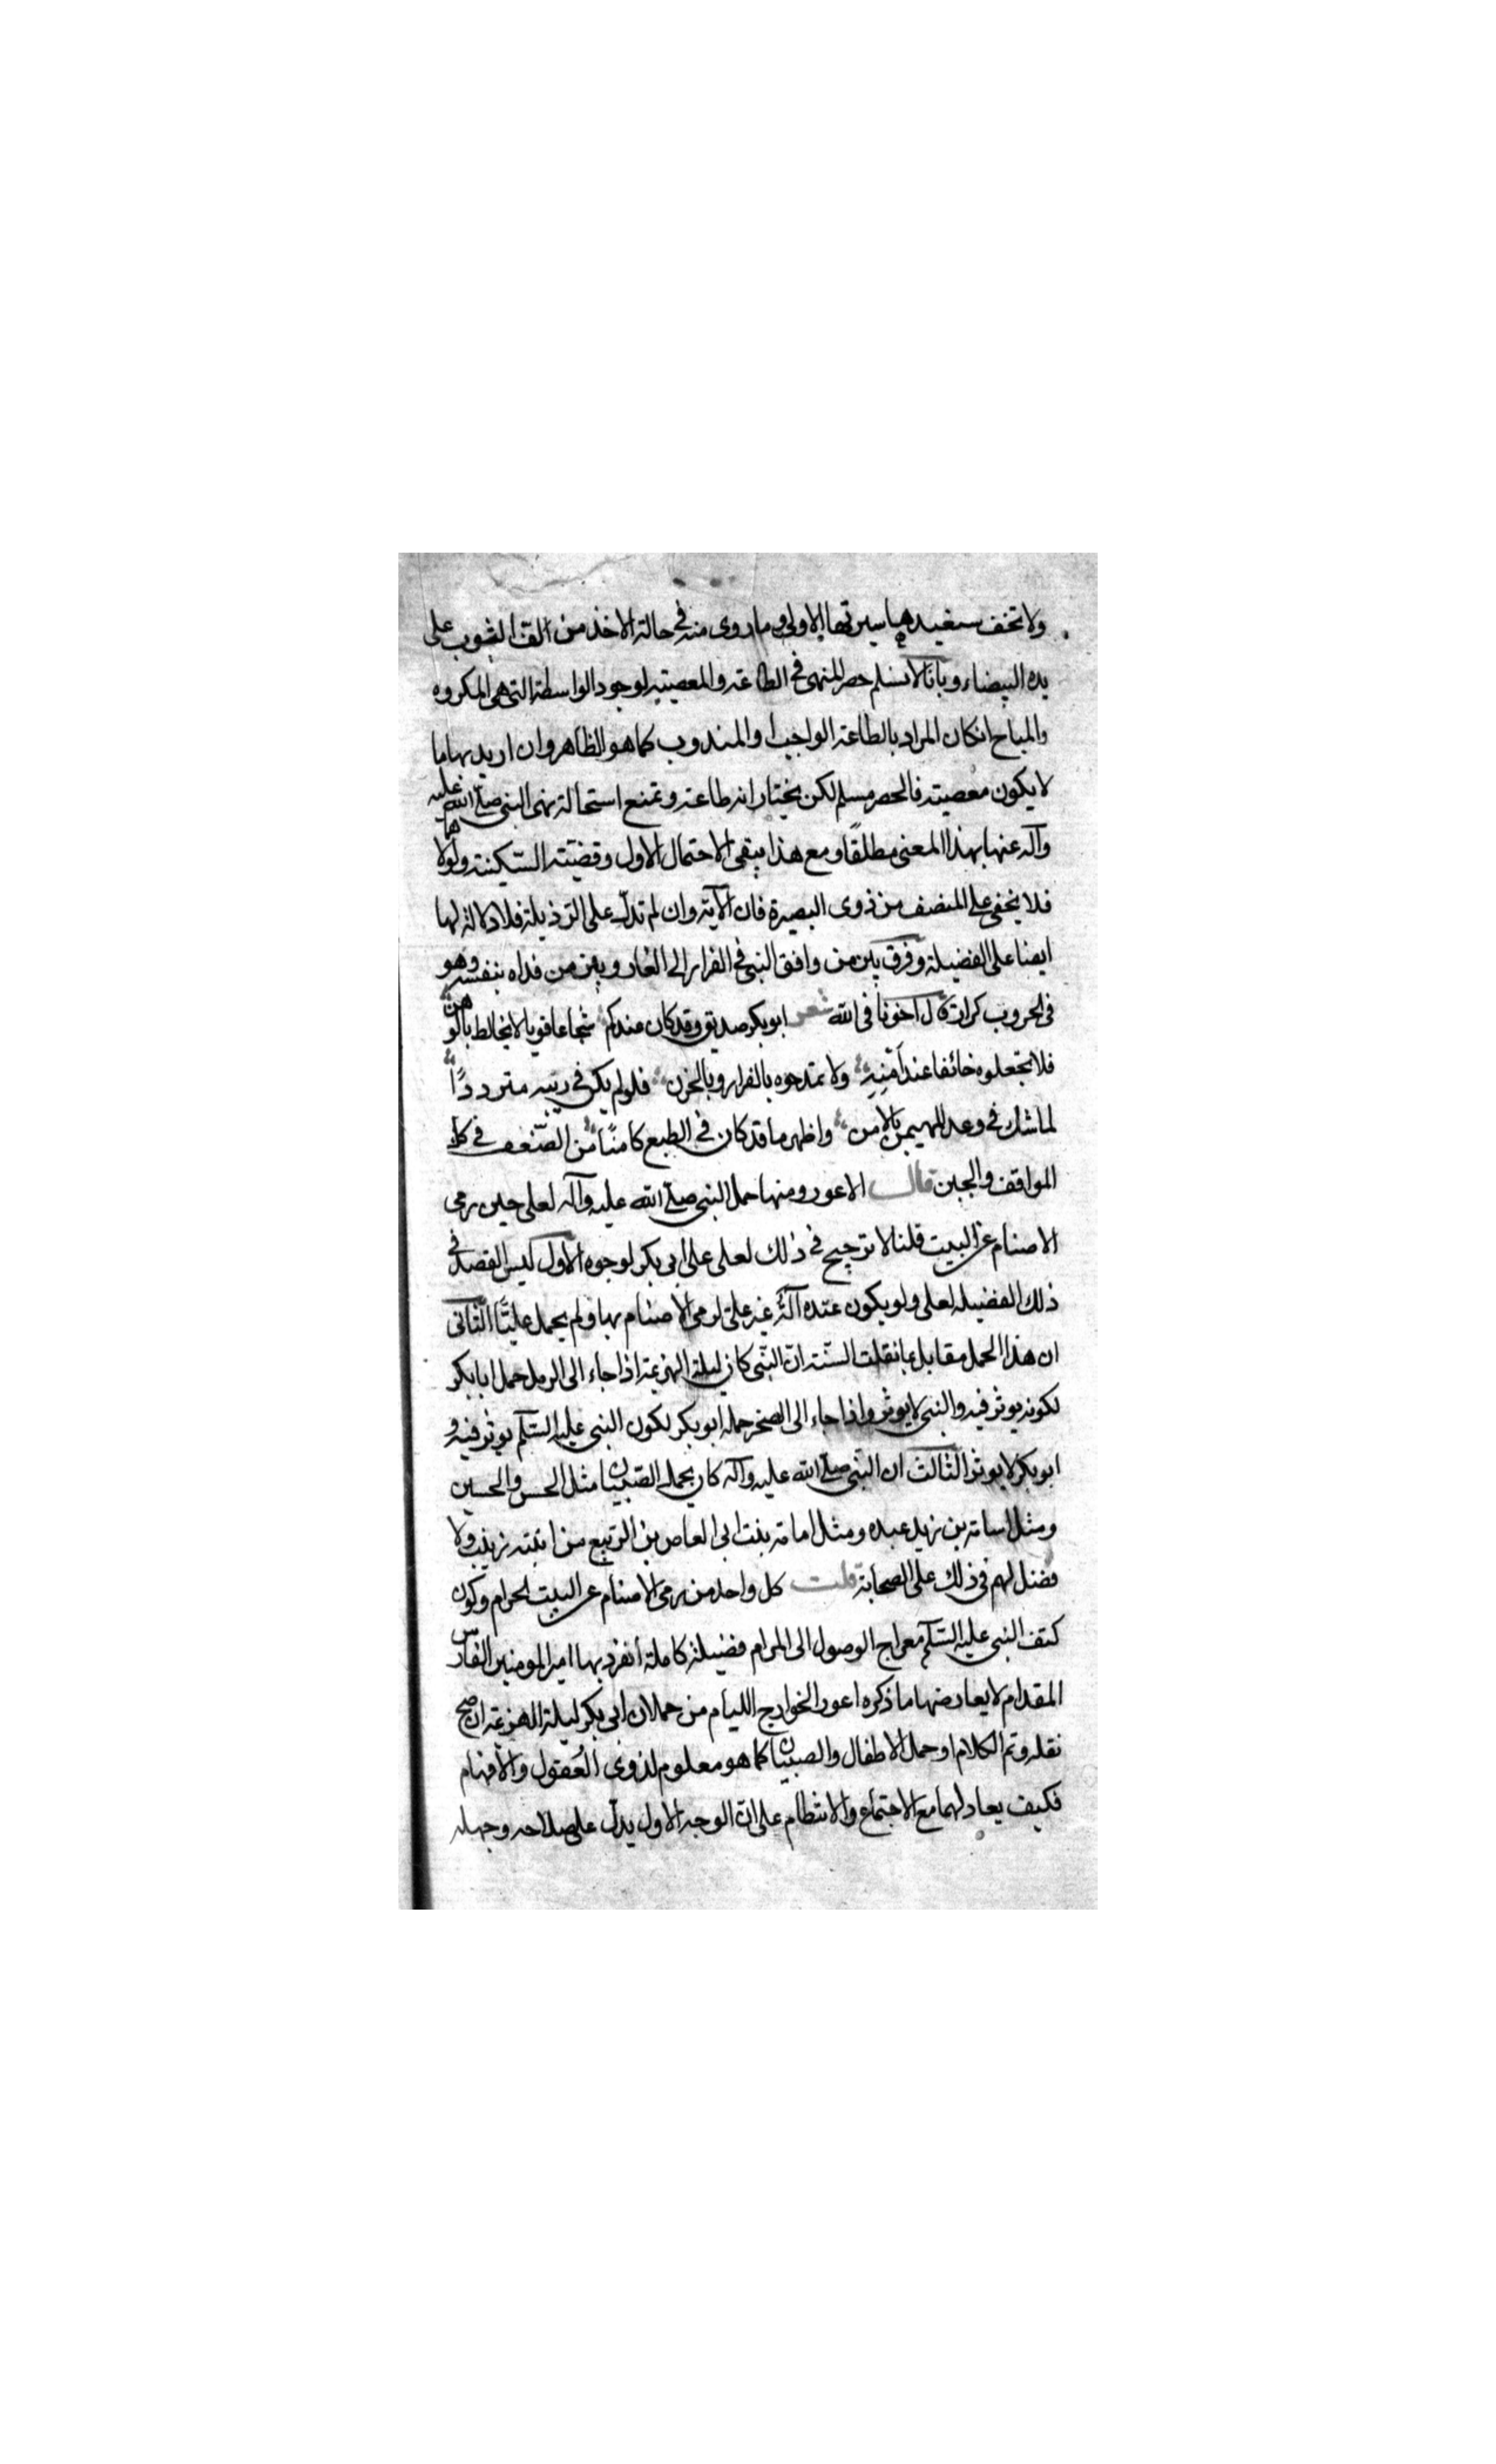 ولا تخف سنعيدها سيرتها الاولى وما روى منه في حالة الاخذ من الف الثوب على
يده البيضاء وبانا لا نسلم حصر المنهى في الطاعة والمعصية لوجود الواسطة التى هى المكروه
والمباح انكان المراد بالطاعة الواجب والمندوب كما هو الظاهر وان اريد بها ما
لا يكون معصية فالحصر مسلم لكن يختار انه طاعة وتمنع استحالة نهى النبى صلى الله عليه
وآله عنها بهذا المعنى مطلقاً ومع هذا يبقى الاحتمال الاول وقضية السّكينة ولولاها
فلا يخفى على المنصف من ذوى البصيرة فان الآية وان لم تدلّ على الرّذيلة فلا دلالة لها
ايضا على الفضيلة وفرق بين من وافق النبى في الفرار الى الغار وبين من فداه بنفسه وهو
في الحروب كرار قال اخونا في الله شعر ابوبكر صديق وقد كان عندكم شجاعا قويا لا يخالط بالوهن
فلا تجعلوه خائفا عند آمنِهِ ولا تمتدحوه بالفرار وبالحزن فلو لم يكن في ريبه مترددًا
لما شك في وعد المهيمن بالامن واظهر ما قد كان في الطبع كامنًا من الضّعف في كل
المواقف والجبن قال الاعور ومنها حمل النبى صلى الله عليه وآله لعلى حين رمى
الاصنام عن البيت قلنا لا ترجيح في ذلك لعلى على ابى بكر لوجوه الاول ليس القصد في
ذلك الفضيله لعلى ولو يكون عنده آلة غير على لرمى الاصنام بها ولم يحمل عليًّا الثّانى
ان هذا الحمل مقابل بما نقلت السّنة انّ النّبى كان ليلة الهزيمة اذا جاء الى الرمل حمل ابابكر
لكونه يوثر فيه والنبى لا يوثر واذا جاء الى الصخر حمله ابوبكر لكون النبى عليه السّلم يوثر فيه و
ابوبكر لا يوثر الثالث ان النّبى صلى الله عليه وآله كان يحمل الصّبيان مثل الحسن والحسين
ومثل اسامة بن زيد عبده ومثل امامة بنت ابى العاص بن الربيع من ابنته زينب ولا
فضل لهم في ذلك على الصحابة قلت كل واحد من رمى الاصنام عن البيت الحرام وكون
كتف النبى عليه السّلم معراج الوصول الى المرام فضيلة كاملة انفرد بها امير المومنين الفارس
المقدام لا يعارضها ما ذكره اعور الخوارج الليام من حملان ابى بكر ليلة الهزيمة ان صح
نقله وتم الكلام او حمل الاطفال والصبيان كما هو معلوم لذوى العقول والافهام
فكيف يعادلهما مع الاجتماع والانتظام على انّ الوجه الاول يدلّ على صلاحه وجهله